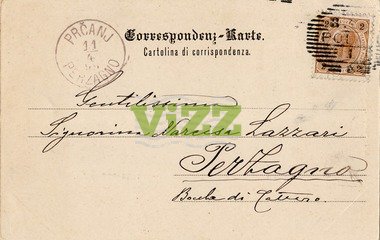 PRČANJ
11
4
PERZAGNO
Correspondenz-Karte.
Cartolina di corrispondenza.
Gentilissima
Signorina Narcisa Lazzari
ViZZ
Perzagno
Bocche di Cattaro.